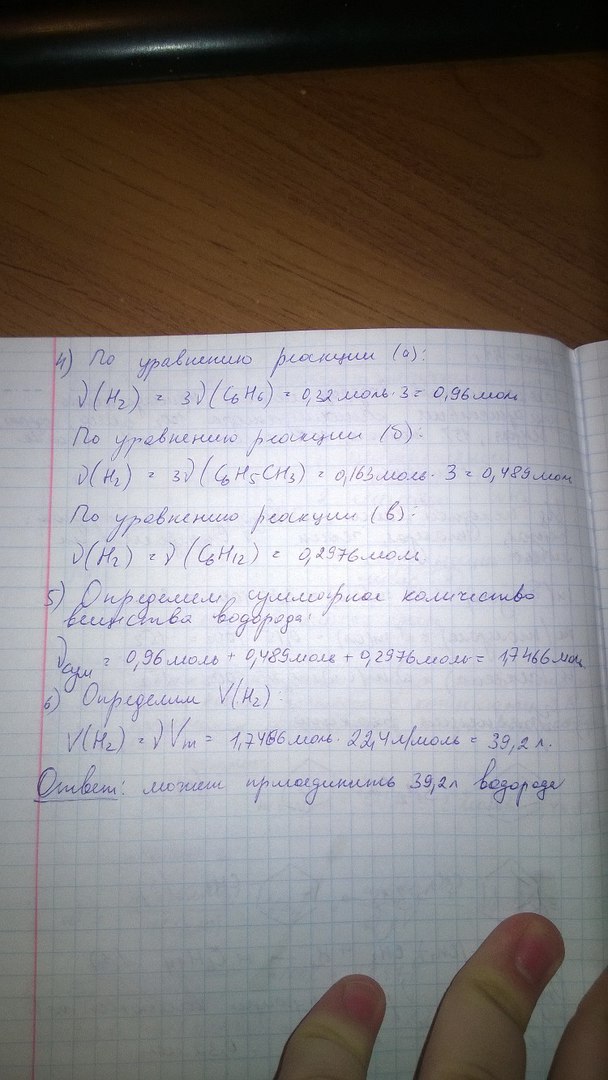 4) По уравнению реакции (а):
ν(H₂) = 3ν(C₆H₆) = 0,32 моль · 3 = 0,96 моль
По уравнению реакции (б):
ν(H₂) = 3ν(C₆H₅CH₃) = 0,163 моль · 3 = 0,489 моль
По уравнению реакции (в):
ν(H₂) = ν(C₆H₁₂) = 0,2976 моль
5) Определяем суммарное количество
вещества водорода:
νсум = 0,96 моль + 0,489 моль + 0,2976 моль = 1,7466 моль
6) Определим V(H₂):
V(H₂) = νVm = 1,7466 моль · 22,4 л/моль = 39,2 л.
Ответ: может присоединить 39,2 л водорода